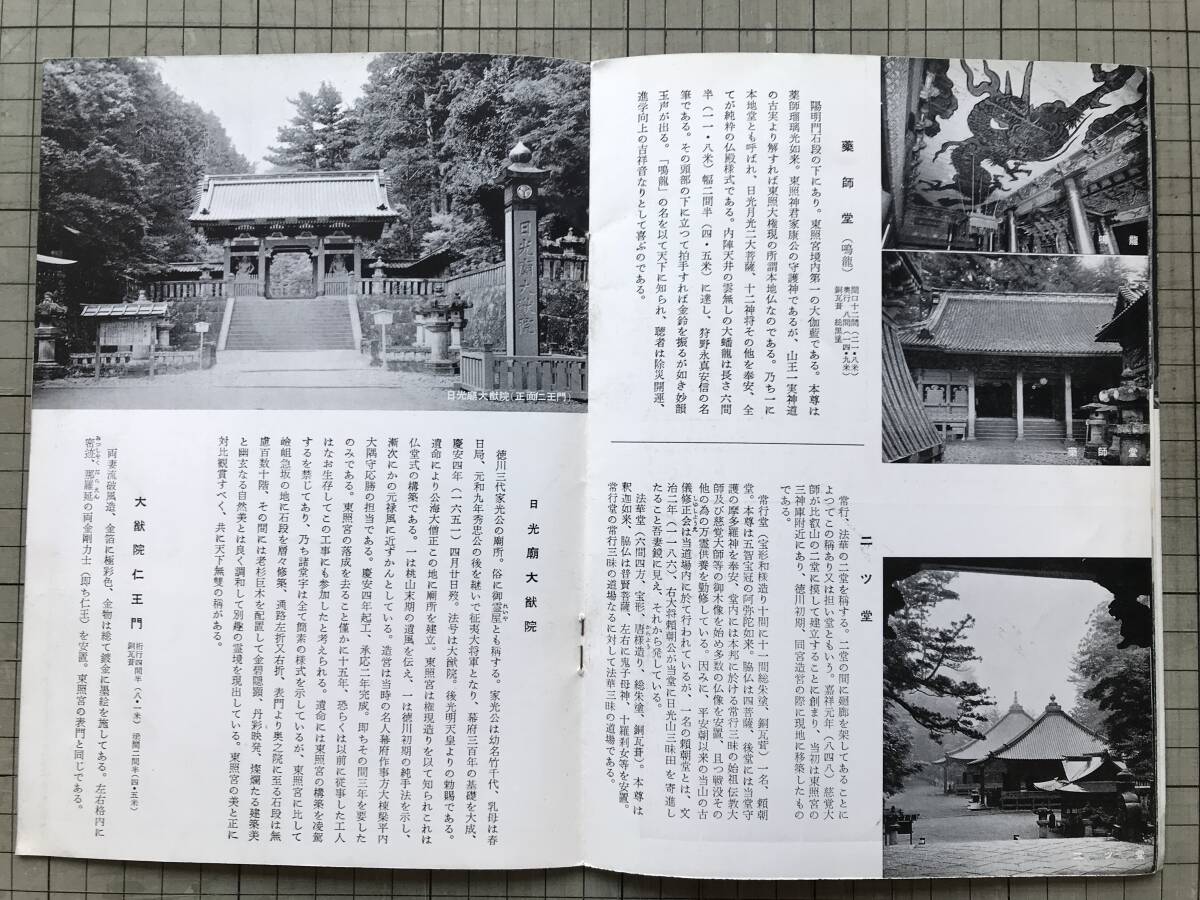 藥師堂（鳴龍）
陽明門石段の下にあり。東照宮境内第一の大伽藍である。本尊は
薬師瑠璃光如来。東照神君家康公の守護神であるが、山王一実神道
の古実より解すれば東照大権現の所謂本地仏なのである。乃ち一に
本地堂とも呼ばれ、日光月光二大菩薩、十二神将その他を奉安、全
てが純粋の仏殿様式である。内陣天井の雲無しの大蟠龍は長さ六間
半（一一・八米）幅二間半（四・五米）に達し、狩野永真安信の名
筆である。その頭部の下に立つて拍手すれば金鈴を振るが如き妙韻
玉声が出る。「鳴龍」の名を以て天下に知られ、聴者は除災開運、
進学向上の吉祥音なりとして喜ぶのである。
鳴龍
間口十二間（二一・八米）
奥行八間（一四・九米）
銅瓦葺 総黒塗
薬師堂
二ツ堂
常行、法華の二堂を称する。二堂の間に廻廊を架してあることに
よつてこの称あり又は担い堂ともいう。嘉祥元年（八四八）慈覚大
師が比叡山の二堂に摸して建立することに創まり、当初は東照宮の
三神庫附近にあり、徳川初期、同宮造営の際に現地に移築したもの
である。
常行堂（宝形和様造り十間に十一間総朱塗、銅瓦葺）一名、頼朝
堂。本尊は五智宝冠の阿弥陀如来。脇仏は四菩薩、後堂には当堂守
護の摩多羅神を奉安、堂内には本邦に於ける常行三昧の始祖伝教大
師及び慈覚大師等の御木像を始め多数の仏像を安置、且つ戦没その
他の為の万霊供養を勤修している。因みに、平安朝以来の当山の古
儀修正会は当道場内に於て行われているが、一名の頼朝堂とは、文
治二年（一一八六）、右大将頼朝公が当堂に日光山三昧田を寄進し
たること吾妻鏡に見え、それから発している。
法華堂（六間四方、宝形、唐様造り、総朱塗、銅瓦葺）。本尊は
釈迦如来、脇仏は普賢菩薩、左右に鬼子母神、十羅刹女等を安置。
常行堂の常行三昧の道場なるに対して法華三昧の道場である。
二ツ堂
日光廟大猷院
日光廟大猷院（正面仁王門）
日光廟大猷院
徳川三代家光公の廟所。俗に御霊屋とも称する。家光公は幼名竹千代、乳母は春
日局、元和九年秀忠公の後を継いで征夷大将軍となり、幕府三百年の基礎を大成、
慶安四年（一六五一）四月廿日歿。法号は大猷院。後光明天皇よりの勅賜である。
遺命により公海大僧正この地に廟所を建立。東照宮は権現造りを以て知られこれは
仏堂式の構築である。一は桃山末期の遺風を伝え、一は徳川初期の純手法を示し、
漸次にかの元禄風に近ずかんとしている。造営は当時の名人幕府作事方大棟梁平内
大隅守応勝の担当である。慶安四年起工、承応二年完成。即ちその間三年を要した
のみである。東照宮の落成を去ること僅かに十五年、恐らくは以前に従事した工人
はなお生存してこの工事にも参加したと考えられる。遺命には東照宮の構築を凌駕
するを禁じてあり、乃ち諸堂宇は全て簡素の様式を示しているが、東照宮に比して
嶮岨急坂の地に石段を層々修築、通路左折又右折、表門より奥之院に至る石段は無
慮百数十階、その間には老杉巨木を配置して金碧隠顕、丹彩映発、燦爛たる建築美
と幽玄なる自然美とは良く調和して別趣の霊境を現出している。東照宮の美と正に
対比観賞すべく、共に天下無雙の称がある。
大猷院仁王門
桁行四間半（八・一米）梁間二間半（四・五米）
銅瓦葺
両妻流破風造、金箔に極彩色、金物は総て鍍金に墨絵を施してある。左右格内に
密迹、那羅延の両金剛力士（即ち仁王）を安置。東照宮の表門と同じである。